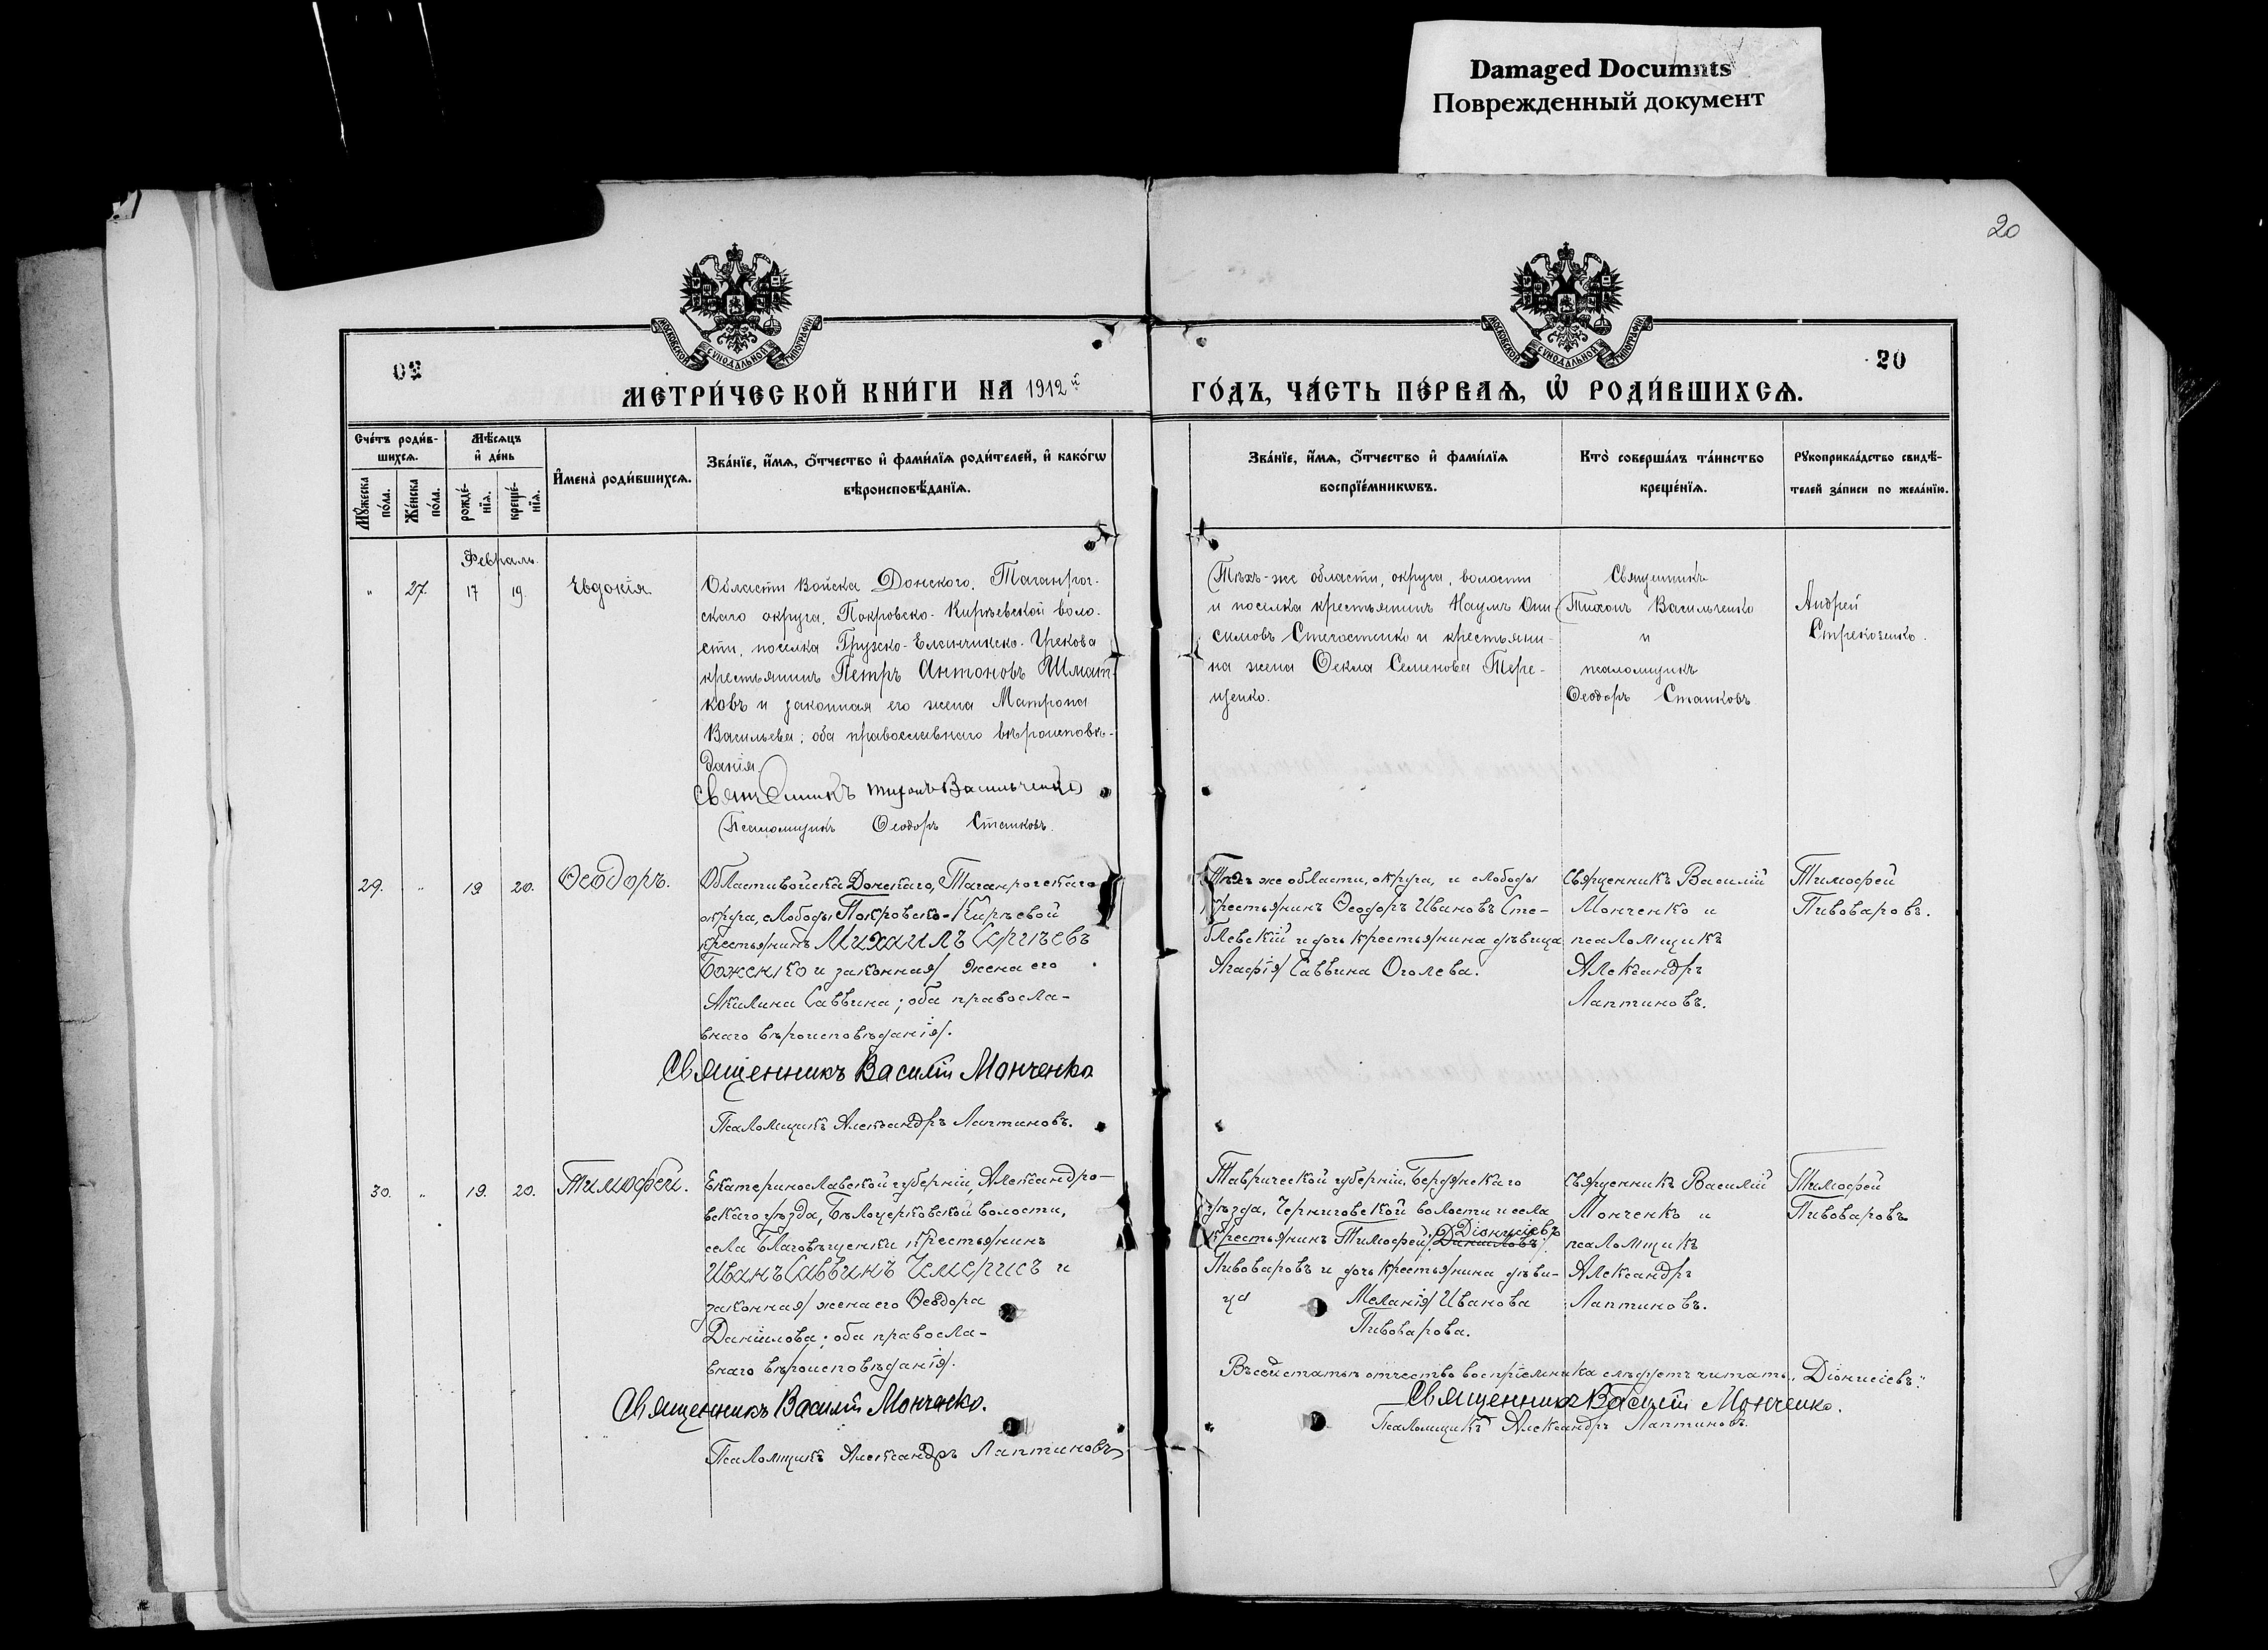 Damaged Documnts
Поврежденный документ
20
МОСКОВСКОЙ СУНОДАЛЬНОЙ ТИПОГРАФІИ
МОСКОВСКОЙ СУНОДАЛЬНОЙ ТИПОГРАФІИ
20
МЕТРИ́ЧЕСКОЙ КНИ́ГИ НА 1912й
ГО́ДЪ, ЧА́СТЬ ПЕ́РВАѦ, Ѡ҆ РОДИ́ВШИХСѦ.
Сче́тъ роди́в-
шихсѧ.
Мѣ́сѧцъ
и҆ де́нь
Мꙋ́жеска по́ла.
Же́нска по́ла.
рожде́-
нїѧ.
креще́-
нїѧ.
И҆мена̀ роди́вшихсѧ.
Зва́нїе, и҆́мѧ, ѻ҆́тчество и҆ фами́лїѧ роди́телей, и҆ како́гѡ
вѣроисповѣ́данїѧ.
Зва́нїе, и҆́мѧ, ѻ҆́тчество и҆ фами́лїѧ
воспрїе́мникѡвъ.
Кто̀ соверша́лъ та́инство
креще́нїѧ.
Рꙋкоприкла́дство свидѣ́-
телей за́писи по жела́нїю.
Февраль.
" 27. 17 19 Евдокія.
Области Войска Донского, Таганрог-
скаго округа, Покровско-Кирѣевской воло-
сти, поселка Грузско-Еланчикско-Грекова
крестьянинъ Петръ Антоновъ Шмат-
ковъ и законная его жена Матрона
Васильева; оба православнаго вѣроисповѣ-
данія.
Священникъ Тихонъ Васильченко
Псаломщикъ Ѳеодоръ Станковъ.
Тѣхъ-же области, округа, волости
и поселка крестьянинъ Наумъ Они-
симовъ Стегостенко и крестьяни-
на жена Ѳекла Семенова Тере-
щенко.
Священникъ
Тихонъ Васильченко
и
псаломщикъ
Ѳеодоръ Станковъ
Андрей
Стрекозенко.
29. " 19 20. Ѳеодоръ.
Области войска Донскаго, Таганрогскаго
округа, слободы Покровско-Кирѣевой
крестьянинъ Михаилъ Сергѣевъ
Боженко и законная жена его
Акилина Саввина; оба правосла-
внаго вѣроисповѣданія.
Священникъ Василій Монченко
Псаломщикъ Александръ Лаптиновъ.
Тѣхъ же области, округа, и слободы
крестьянинъ Ѳеодоръ Ивановъ Сте-
блевскій и дочь крестьянина дѣвица
Агафія Саввина Оголева.
Священникъ Василій
Монченко и
псаломщикъ
Александръ
Лаптиновъ.
Тимоѳей
Пивоваровъ.
30. " 19. 20. Тимоѳей.
Екатеринославской губерніи, Александро-
вскаго уѣзда, Бѣлоцерковской волости,
села Благовѣщенки крестьянинъ
Иванъ Саввинъ Чемерисъ и
законная жена его Ѳеодора
Даніилова; оба правосла-
внаго вѣроисповѣданія.
Священникъ Василій Монченко.
Псаломщикъ Александръ Лаптиновъ
Таврической губерніи, Бердянскаго
уѣзда, Черниговской волости и села
Діонисіевъ
крестьянинъ Тимоѳей Данииловъ
Пивоваровъ и дочь крестьянина дѣви-
ца Меланія Иванова
Пивоварова.
Священникъ Василій
Монченко и
псаломщикъ
Александръ
Лаптиновъ.
Тимоѳей
Пивоваровъ
Въ сей статьѣ отчество воспріемника слѣдуетъ читать „Діонисіевъ".
Священникъ Василій Монченко.
Псаломщикъ Александръ Лаптиновъ.